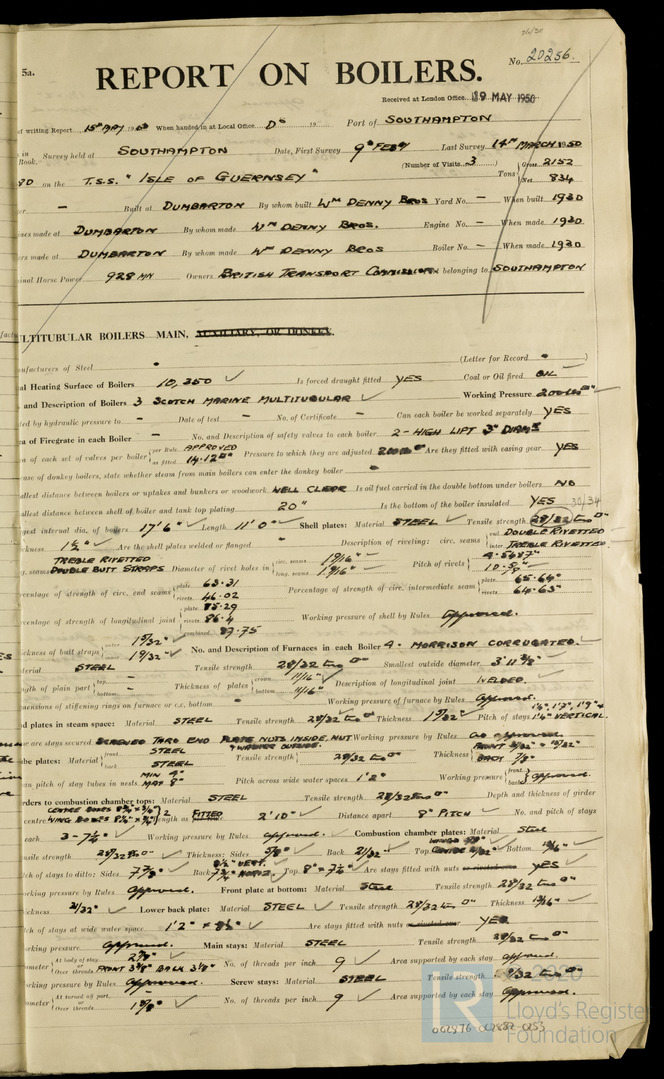 26/50
5a.
REPORT ON BOILERS.
No. 20256.
Received at London Office 19 MAY 1950
of writing Report 15th MAY 1950 When handed in at Local Office Do 19 Port of SOUTHAMPTON
Book. Survey held at SOUTHAMPTON Date, First Survey 9th FEBY Last Survey 14TH MARCH 1950
(Number of Visits 3 )
on the T.S.S. "ISLE OF GUERNSEY" Tons Gross 2152 Net 834
Built at DUMBARTON By whom built Wm DENNY BROS Yard No. — When built 1930
made at DUMBARTON By whom made Wm DENNY BROS. Engine No. — When made 1930
made at DUMBARTON By whom made Wm DENNY BROS Boiler No. — When made 1930
Horse Power 928 MN Owners BRITISH TRANSPORT COMMISSION belonging to SOUTHAMPTON
MULTITUBULAR BOILERS MAIN, AUXILIARY, OR DONKEY.
Manufacturers of Steel (Letter for Record )
Heating Surface of Boilers 10,350 Is forced draught fitted YES Coal or Oil fired OIL
and Description of Boilers 3 SCOTCH MARINE MULTITUBULAR Working Pressure 200 lbs
by hydraulic pressure to — Date of test — No. of Certificate — Can each boiler be worked separately YES
of Firegrate in each Boiler — No. and Description of safety valves to each boiler 2 - HIGH LIFT 3" DIAM
of each set of valves per boiler per Rule APPROVED as fitted 14.12 Pressure to which they are adjusted 200 lbs Are they fitted with easing gear YES
case of donkey boilers, state whether steam from main boilers can enter the donkey boiler
distance between boilers or uptakes and bunkers or woodwork WELL CLEAR Is oil fuel carried in the double bottom under boilers NO
distance between shell of boiler and tank top plating 20" Is the bottom of the boiler insulated YES 30/34
internal dia. of boilers 17'6" Length 11'0" Shell plates: Material STEEL Tensile strength 28/32
1½" Are the shell plates welded or flanged Description of riveting: circ. seams end DOUBLE RIVETTED inter. TREBLE RIVETTED
seams TREBLE RIVETTED DOUBLE BUTT STRAPS Diameter of rivet holes in circ. seams 1 9/16" long. seams 1 9/16" Pitch of rivets 4.5687" 10.5/8"
Percentage of strength of circ. end seams plate 63.31 rivets 46.02 Percentage of strength of circ. intermediate seam plate 65.64 rivets 64.63
Percentage of strength of longitudinal joint plate 85.29 rivets 86.4 combined 87.75 Working pressure of shell by Rules Approved.
Thickness of butt straps outer 1 5/32" inner 1 9/32" No. and Description of Furnaces in each Boiler 4 - MORRISON CORRUGATED.
Material STEEL Tensile strength 28/32 Smallest outside diameter 3'11 3/8"
of plain part top bottom Thickness of plates crown 11/16" bottom 11/16" Description of longitudinal joint WELDED.
Dimensions of stiffening rings on furnace or c.c. bottom Working pressure of furnace by Rules Approved.
plates in steam space: Material STEEL Tensile strength 28/32 Thickness 1 5/32" Pitch of stays 1'6" VERTICAL.
are stays secured SCREWED THRO END PLATE NUTS INSIDE, NUT & WASHER OUTSIDE. Working pressure by Rules as approved
plates: Material front STEEL back STEEL Tensile strength 28/32 Thickness FRONT BACK 7/8"
pitch of stay tubes in nests MIN 9" MAX 8" Pitch across wide water spaces 1'2" Working pressure front back Approved.
Girders to combustion chamber tops: Material STEEL Tensile strength 28/32 Depth and thickness of girder
centre CENTRE BOXES WING BOXES Length as FITTED 2'10" Distance apart 8" PITCH No. and pitch of stays
each 3 - 7¼" Working pressure by Rules Approved. Combustion chamber plates: Material Steel
Tensile strength 28/32 Thickness: Sides 5/8" Back 21/32" Top Bottom 13/16"
Pitch of stays to ditto: Sides 7 7/8" Back 8½" VERT. HORIZ. Top 8" x 7¼" Are stays fitted with nuts YES
Working pressure by Rules Approved. Front plate at bottom: Material Steel Tensile strength 28/32
Thickness 21/32" Lower back plate: Material STEEL Tensile strength 28/32 Thickness 13/16"
Pitch of stays at wide water space 1'2" x 8½" Are stays fitted with nuts YES
Working pressure Approved. Main stays: Material STEEL Tensile strength 28/32
Diameter At body of stay 2 7/8" Over threads FRONT 3 3/8" BACK 3 1/8" No. of threads per inch 9 Area supported by each stay Approved.
Working pressure by Rules Approved. Screw stays: Material STEEL Tensile strength 28/32
Diameter At turned off part Over threads 1 5/8" No. of threads per inch 9 Area supported by each stay Approved.
© 2020
LR
Lloyd's Register
Foundation
002876-002882-0253